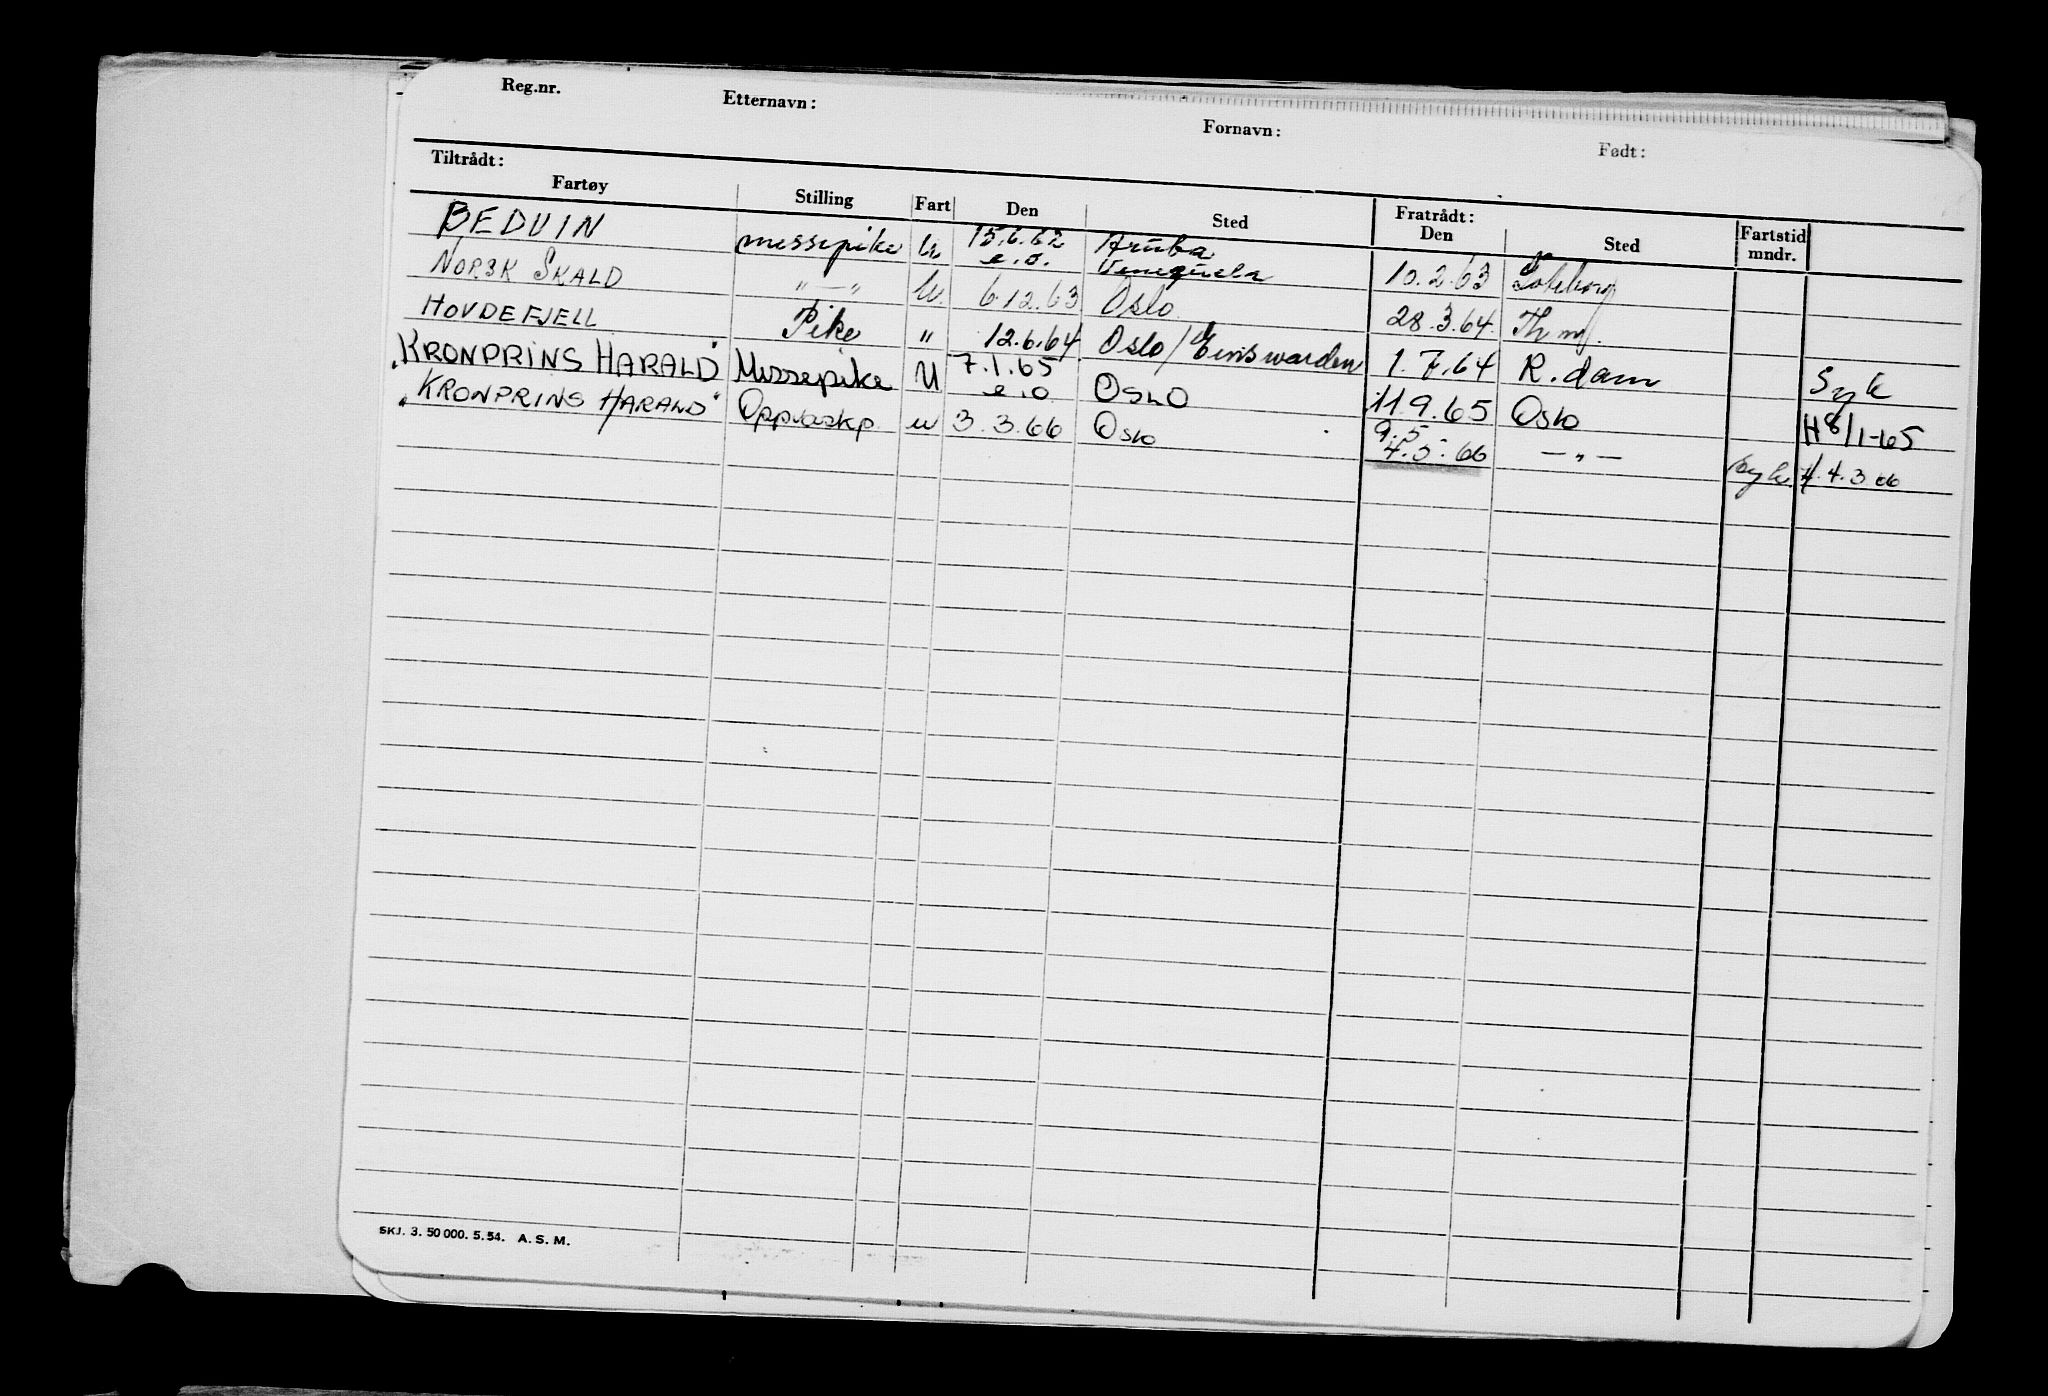 Reg.nr. Etternavn: Fornavn: Født:
Tiltrådt: Fratrådt:
Fartøy Stilling Fart Den Sted Den Sted Fartstid mndr.
BEDUIN messepike U 15.6.62 e.o. Aruba Venezuela 10.2.63 Göteborg
NORSK SKALD "—" U. 6.12.63 Oslo 28.3.64
HOVDEFJELL Pike " 12.6.64 Oslo/Einswarden 1.7.64 R.dam Syk
"KRONPRINS HARALD" Messepike U 7.1.65 e.o OSLO 11.9.65 Oslo H 8/1-65
"KRONPRINS HARALD" Oppvaskp. u 3.3.66 Oslo 9.5 4.5.66 —"— syk. H. 4.3.66
SKJ. 3. 50 000. 5.54. A. S. M.